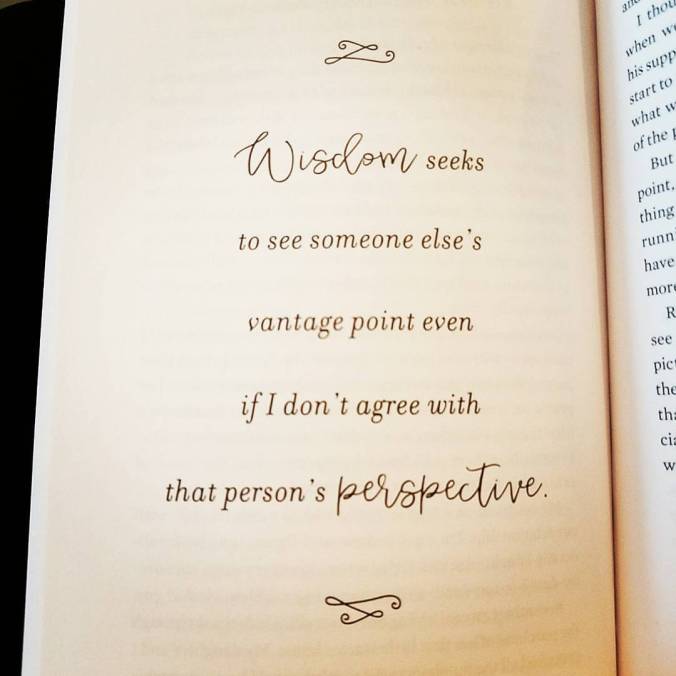 Wisdom seeks
to see someone else's
vantage point even
if I don't agree with
that person's perspective.
I thou
when we
his supp
start to
what w
of the p
But
point,
thing
runni
have
more
R
see
pict
the
tha
cia
w